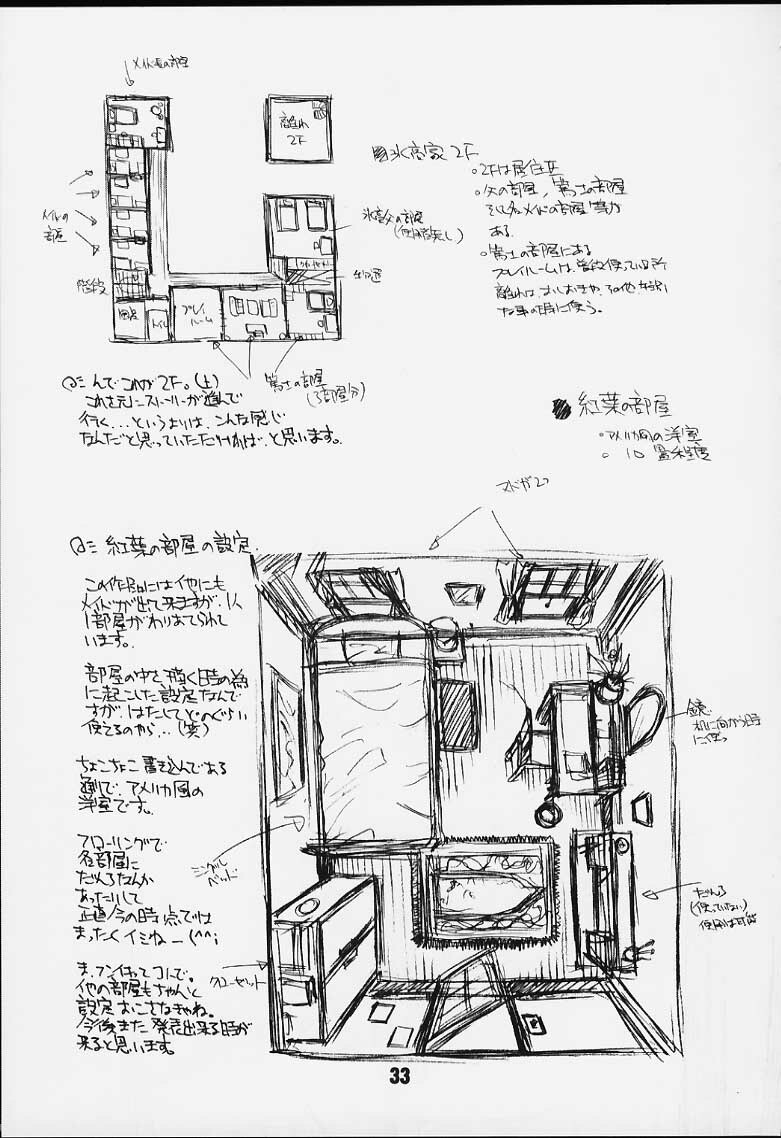 メイド長の部屋
離れ
2F
■氷商家 2F
。2Fは居住区
。矢の部屋,篤士の部屋
そして各メイドの部屋等が
ある。
。篤士の部屋にある
プレイルームは普段使っている所
離れは、おしおきや、その他、特別
な事の時に使う。
メイドの
部屋
階段
トイレ
プレイ
ルーム
(使用者無し)
篤士の部屋
(3部屋分)
んで これが 2F。(上)
これを元にストーリーが進んで
行く...というよりは、こんな感じ
なんだと思っていただければ、と思います。
紅葉の部屋
。アメリカ風の洋室
。10畳程度
マドが2つ
紅葉の部屋の設定
この作品には他にも
メイドが出て来ますが、1人
1部屋がわりあてられて
います。
部屋の中を描く時の為
に起こした設定なんで
すが、はたしてどのぐらい
使えるのやら...(笑)
ちょこちょこ書き込んである
通りで、アメリカ風の
洋室です。
フローリングで
各部屋に
だんろなんか
あったりして
正直今の時点では
まったくイミねー(^^;
ま、フンイキってコトで。
他の部屋もちゃんと
設定おこさなきゃね。
今後また発表出来る時が
来ると思います。
鏡。
机に向かう時
に使う
シングル
ベッド
クローゼット
だんろ
(使っていない)
使用は可能
33